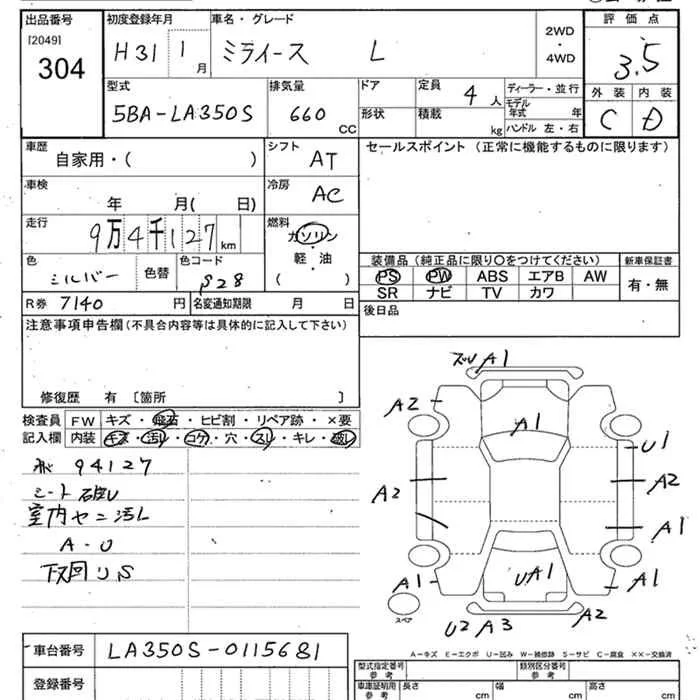 出品番号 初度登録年月 車名・グレード 評価点
[2049] 304 H31 1月 ミライース L 2WD・4WD 3.5
外装 内装
C D
型式 排気量 ドア 定員 4人 ディーラー・並行
5BA-LA350S 660cc 形状 積載 kg モデル年式 年
ハンドル 左・右
車歴 シフト セールスポイント (正常に機能するものに限ります)
自家用・( ) AT
車検 冷房
年 月( 日) AC
走行 燃料
9万4千127km ガソリン・軽・油 ( )
色 色替 色コード
シルバー S28
装備品 (純正品に限り○をつけてください) 新車保証書
PS PW ABS エアB AW 有・無
SR ナビ TV カワ
R券 7140円 名変通知期限 月 日 後日品
注意事項申告欄 (不具合内容等は具体的に記入して下さい)
修復歴 有 〔箇所 〕
検査員 FW キズ・飛石・ヒビ割・リペア跡・×要
記入欄 内装 キズ・汚レ・コゲ・穴・スレ・キレ・破レ
94127
シート
室内ヤニ汚レ
A-U
下回リS
A1
A2 A1 U1
A2 A2
A1
A1 UA1 A1
スペア
U2 A3 A2
A－キズ E－エクボ U－凹み W－補修跡 S－サビ C－腐食 ××－交換済
車台番号 LA350S-0115681
型式指定番号 参考 類別区分番号 参考
登録番号 車庫証明用 参考 長さ cm 幅 cm 高さ cm